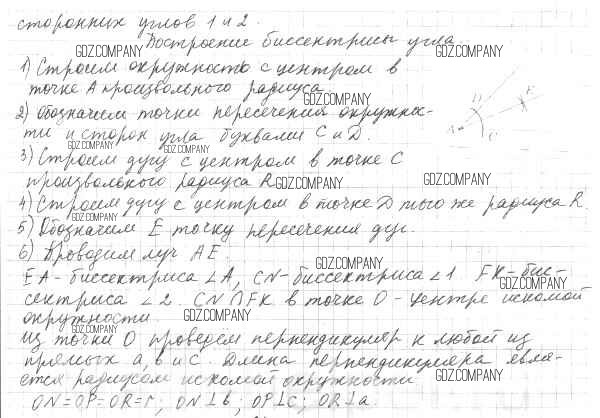 сторонних углов 1 и 2.
Построение биссектрисы угла.
GDZ.COMPANY GDZ.COMPANY
1) Строим окружность с центром в
точке А произвольного радиуса
GDZ.COMPANY
2) Обозначим точки пересечения окружнос-
ти и сторон угла буквами С и D.
GDZ.COMPANY GDZ.COMPANY
3) Строим дугу с центром в точке С
произвольного радиуса R
GDZ.COMPANY GDZ.COMPANY
4) Строим дугу с центром в точке D того же радиуса R.
GDZ.COMPANY
5) Обозначим Е точку пересечения дуг.
6) Проводим луч АЕ.
GDZ.COMPANY
EA - биссектриса ∠A, CN - биссектриса ∠1 FK - бис-
GDZ.COMPANY
сектриса ∠2. CN ∩ FK в точке О - центре искомой
окружности.
GDZ.COMPANY
GDZ.COMPANY
из точки О проведем перпендикуляр к любой из
прямых a, b и c. Длина перпендикуляра явля-
ется радиусом искомой окружности
GDZ.COMPANY
ON = OP = OR = r; ON ⊥ b; OP ⊥ c; OR ⊥ a.
D
E
A
C